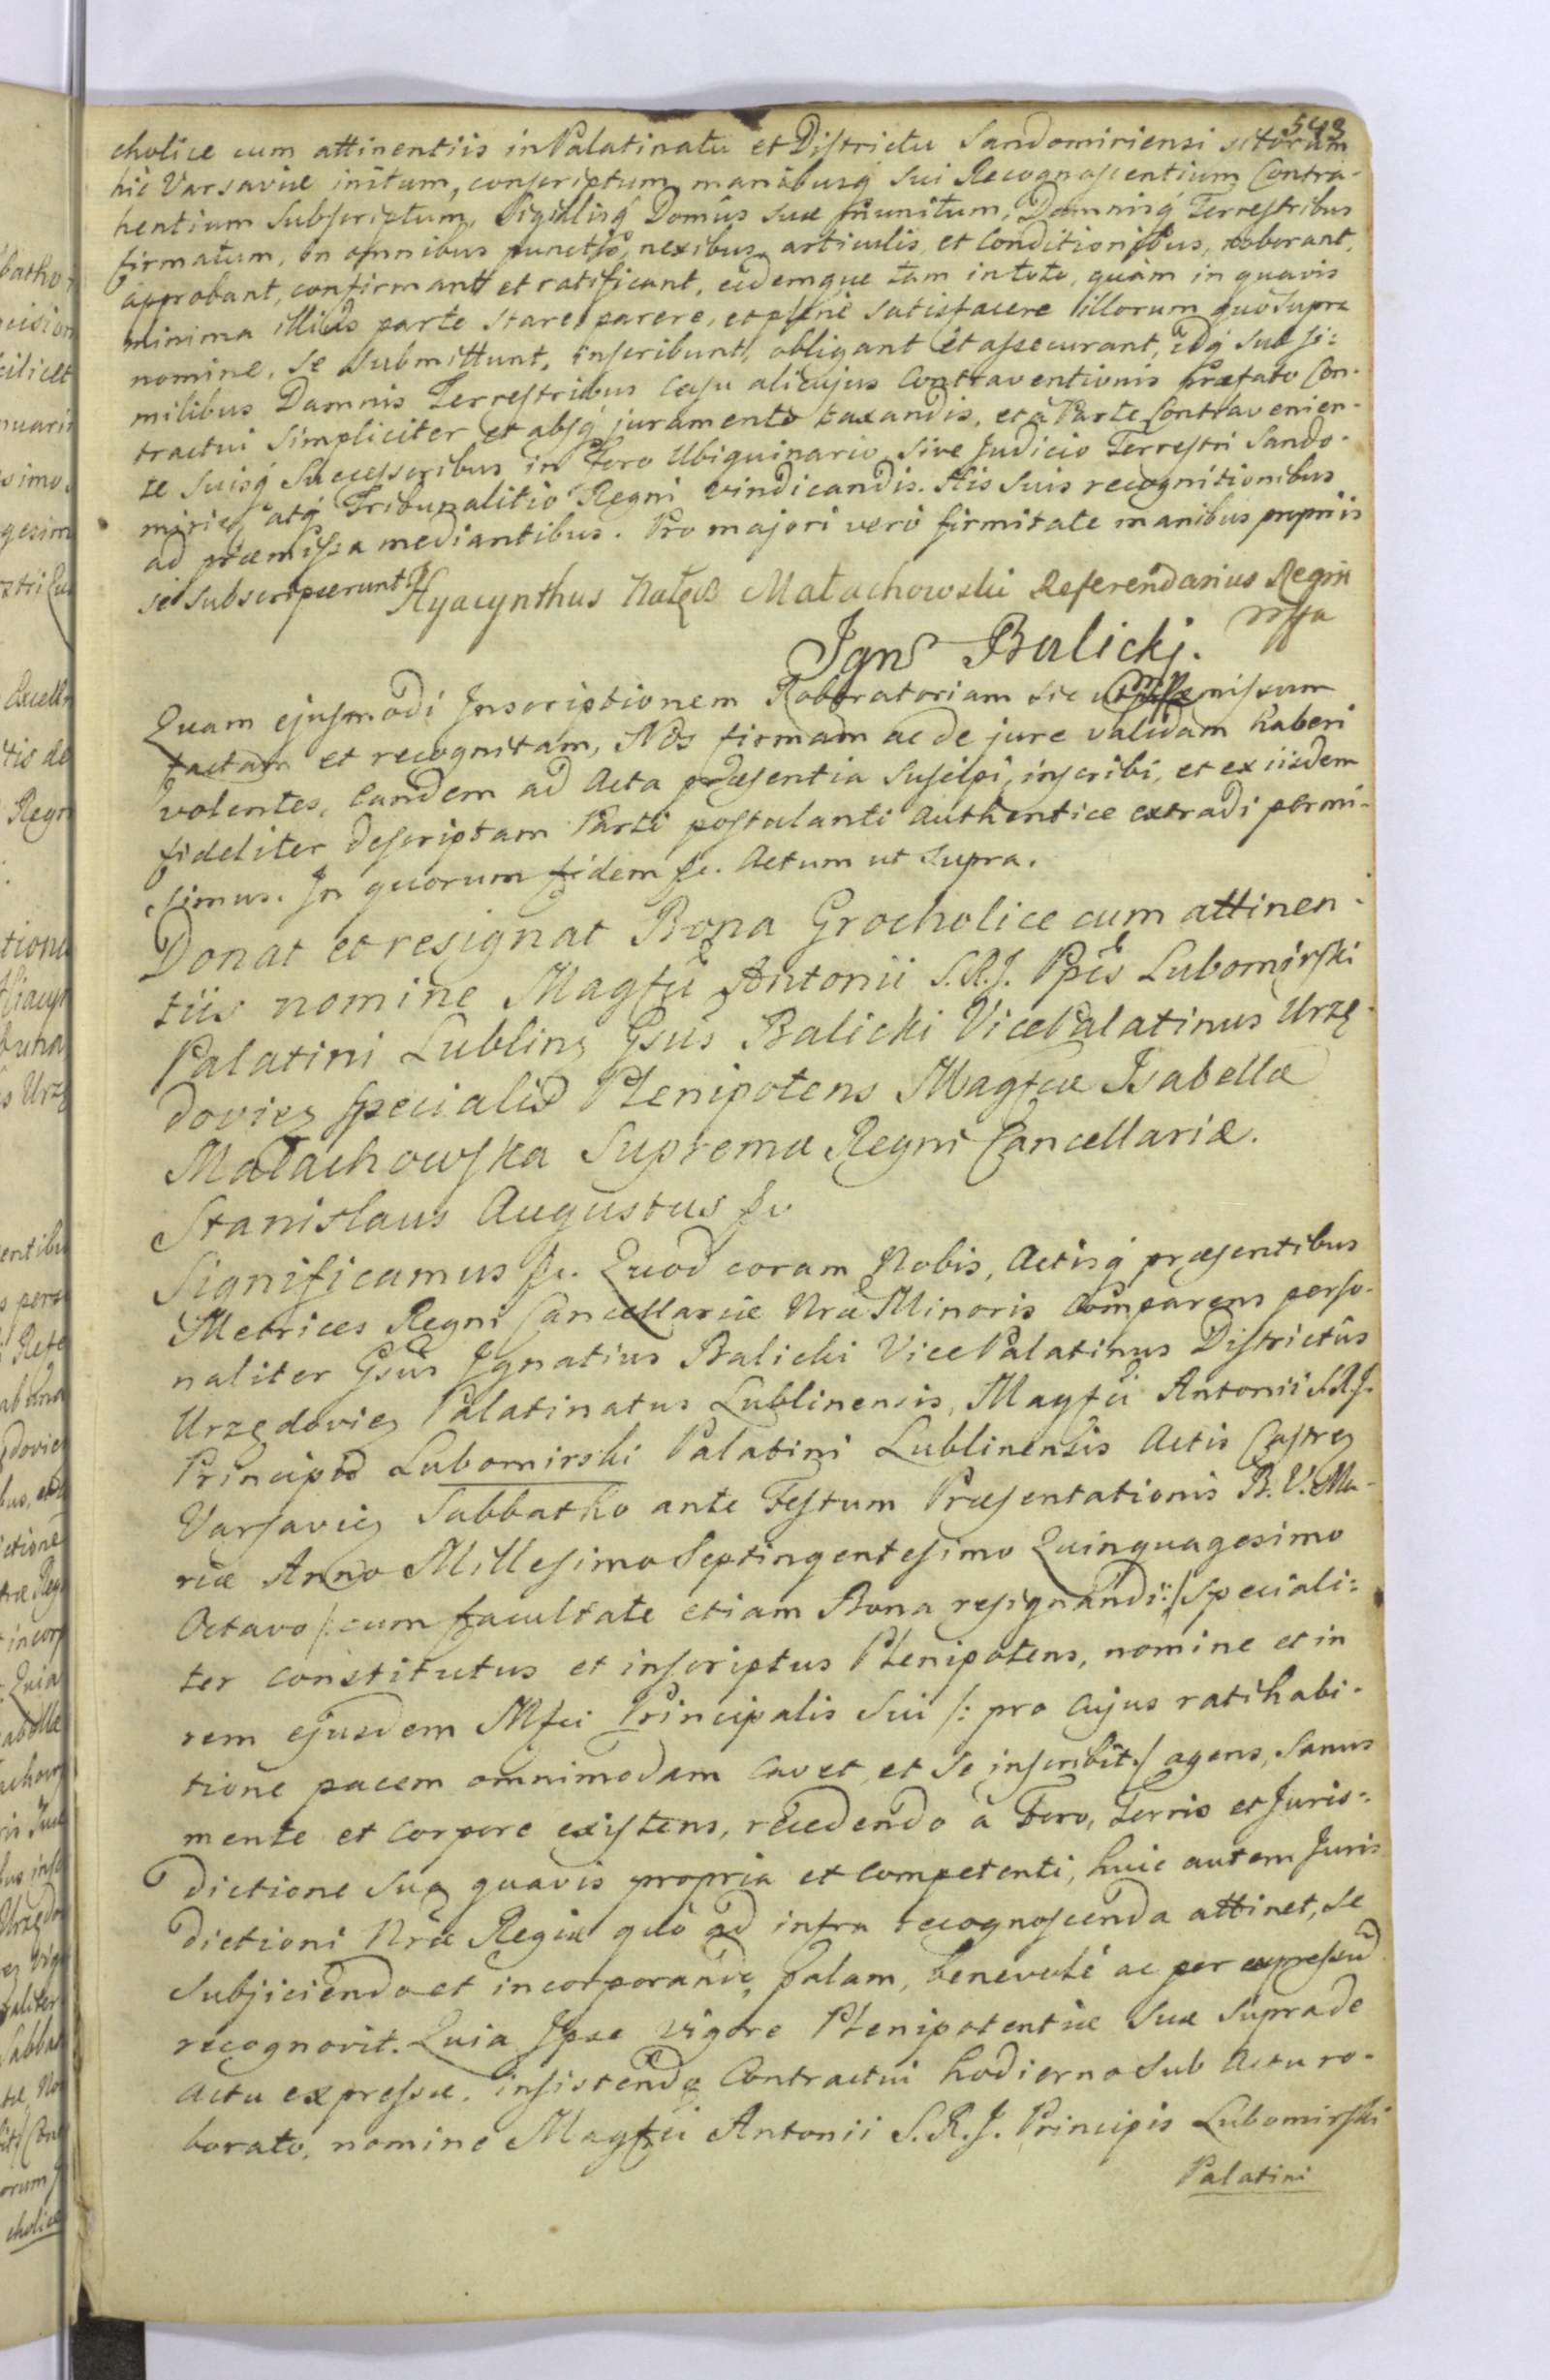 543
cholice cum attinentiis in Palatinatu et Districtu Sandomiriensi sitorum
hic Varsaviæ initum, conscriptum manibusq́ sui Recognoscentium Contra-
hentium subscriptum, Sigillisq́ Domûs suæ munitum, Damnisq́ Terrestribus
firmatum, in omnibus punctis, nexibus, articulis et Conditionibus, roborant,
approbant, confirmant et ratificant, eidemque tam in toto, quàm in quavis
minima illius parte stare, parere, et plenè satisfacere illorum quô supra
nomine, se submittunt, inscribunt, obligant et assecurant, idq́ sub si:
milibus Damnis Terrestribus Casu alicujus Contraventionis præfato Con-
tractui simpliciter et absq́ juramento taxandis, et à Parte Contravenien-
te suisq́ Successoribus in Foro Ubiquinario, sive Judicio Terrestri Sando-
mirieȝ atq́ Tribunalitio Regni vindicandis. His suis recognitionibus
ad præmissa mediantibus. Pro majori verò firmitate manibus propriis
se subscripserunt.
Hyacynthus Małachowski Referendarius Regni
mppa
Igns Balickj.
Quam ejusmodi Inscriptionem Roboratoriam sic ut præmissum
factam et recognitam, Nos firmam ac de jure validam haberi
volentes, Eandem ad Acta præsentia suscipi, inscribi, et ex iisdem
fideliter descriptam Parti postulanti authentice extradi permi-
simus. In quorum fidem &c. Actum ut supra.
Donat et resignat Bona Grocholice cum attinen-
tiis nomine Magfci Antonii S.R.J. Ppis Lubomirski
Palatini Lublineȝ Gsus Balicki VicePalatinus Urzę-
dovieȝ specialis Plenipotens Magfcæ Isabellæ
Małachowska Supremæ Regni Cancellariæ.
Stanislaus Augustus &c
Significamus &c. Quod coram Nobis, Actisq́ præsentibus
Metrices Regni Cancellariæ Nræ Minoris Comparens perso-
naliter Gsus Ignatius Balicki VicePalatinus Districtûs
Urzędovieȝ Palatinatus Lublinensis, Magfci Antonii S.R.J.
Principis Lubomirski Palatini Lublinensis Actis Castreȝ
Varsavieȝ Sabbatho ante Festum Præsentationis B.V. Ma-
riæ Anno Millesimo Septingentesimo Quinquagesimo
Octavo /: cum facultate etiam Bona resignandi :/ speciali:
ter constitutus et inscriptus Plenipotens, nomine et in
rem ejusdem Mfci Principalis sui /: pro cujus ratihabi-
tione pacem omnimodam cavet et se inscribit :/ agens, sanus
mente et corpore existens, recedendo à Foro, Terris et Juris:
dictione sua quavis propria et competenti, huic autem Juris
dictioni Nræ Regiæ quô ad infra recognoscenda attinet, se
subjiciendo et incorporando, palam, benevolé ac per expressũ
recognovit. Quia Ipse vigore Plenipotentiæ suæ supra de
actu expressæ, insistendo Contractui hodierno sub Actu ro-
borato, nomine Magfci Antonii S.R.J. Principis Lubomirski
Palatini